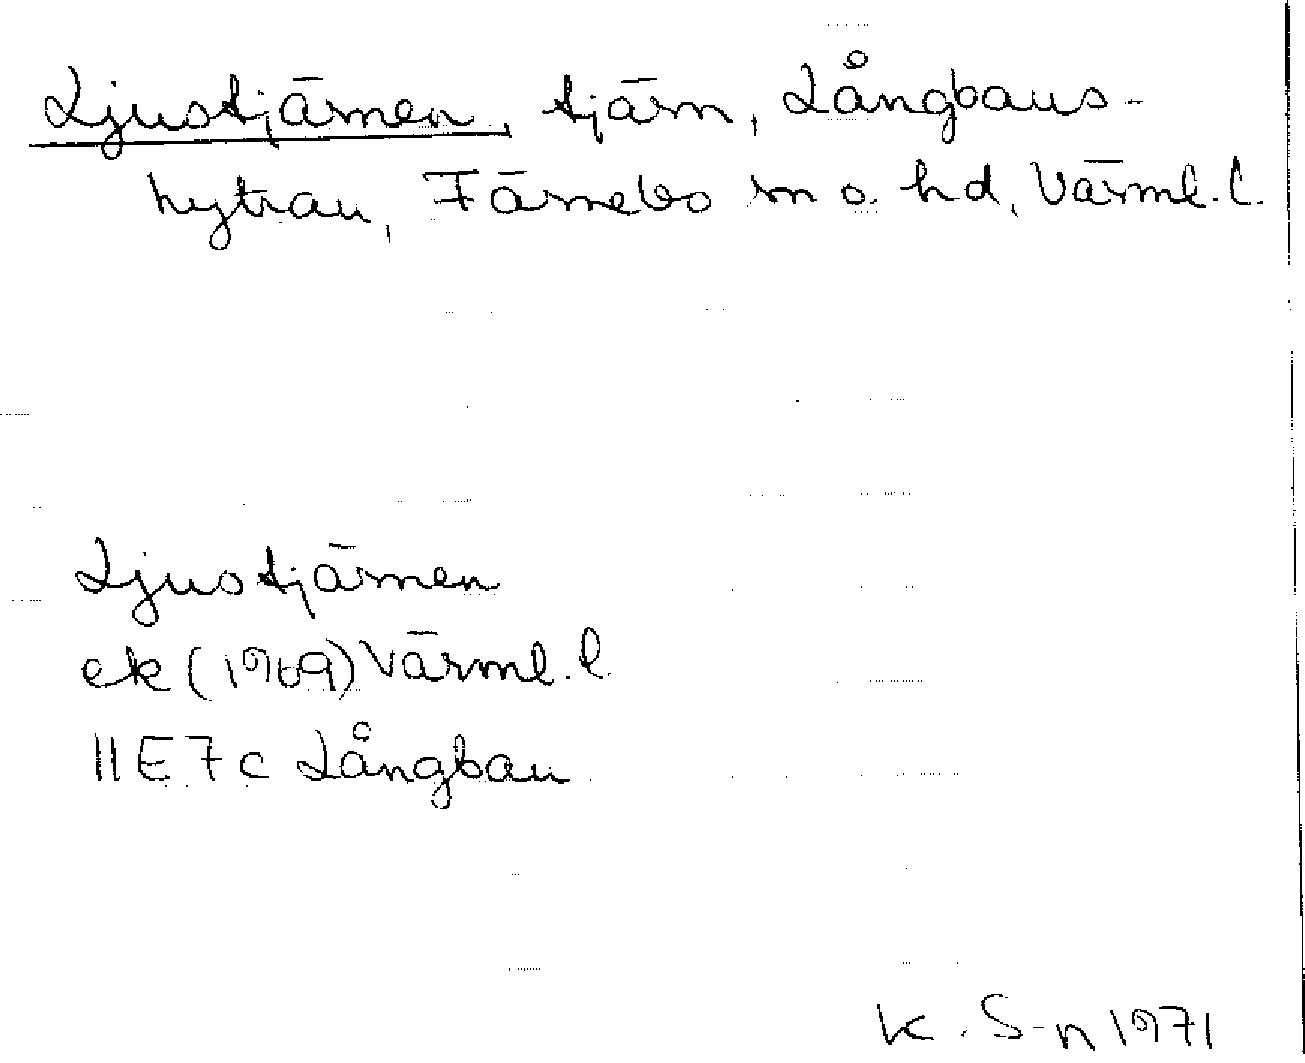 Ljustjärnen, tjärn, Långbans-
hyttan, Färnebo sn o. hd, Värml. l.
Ljustjärnen
ek (1969) Värml. l.
11E 7c Långban
K. S-n 1971